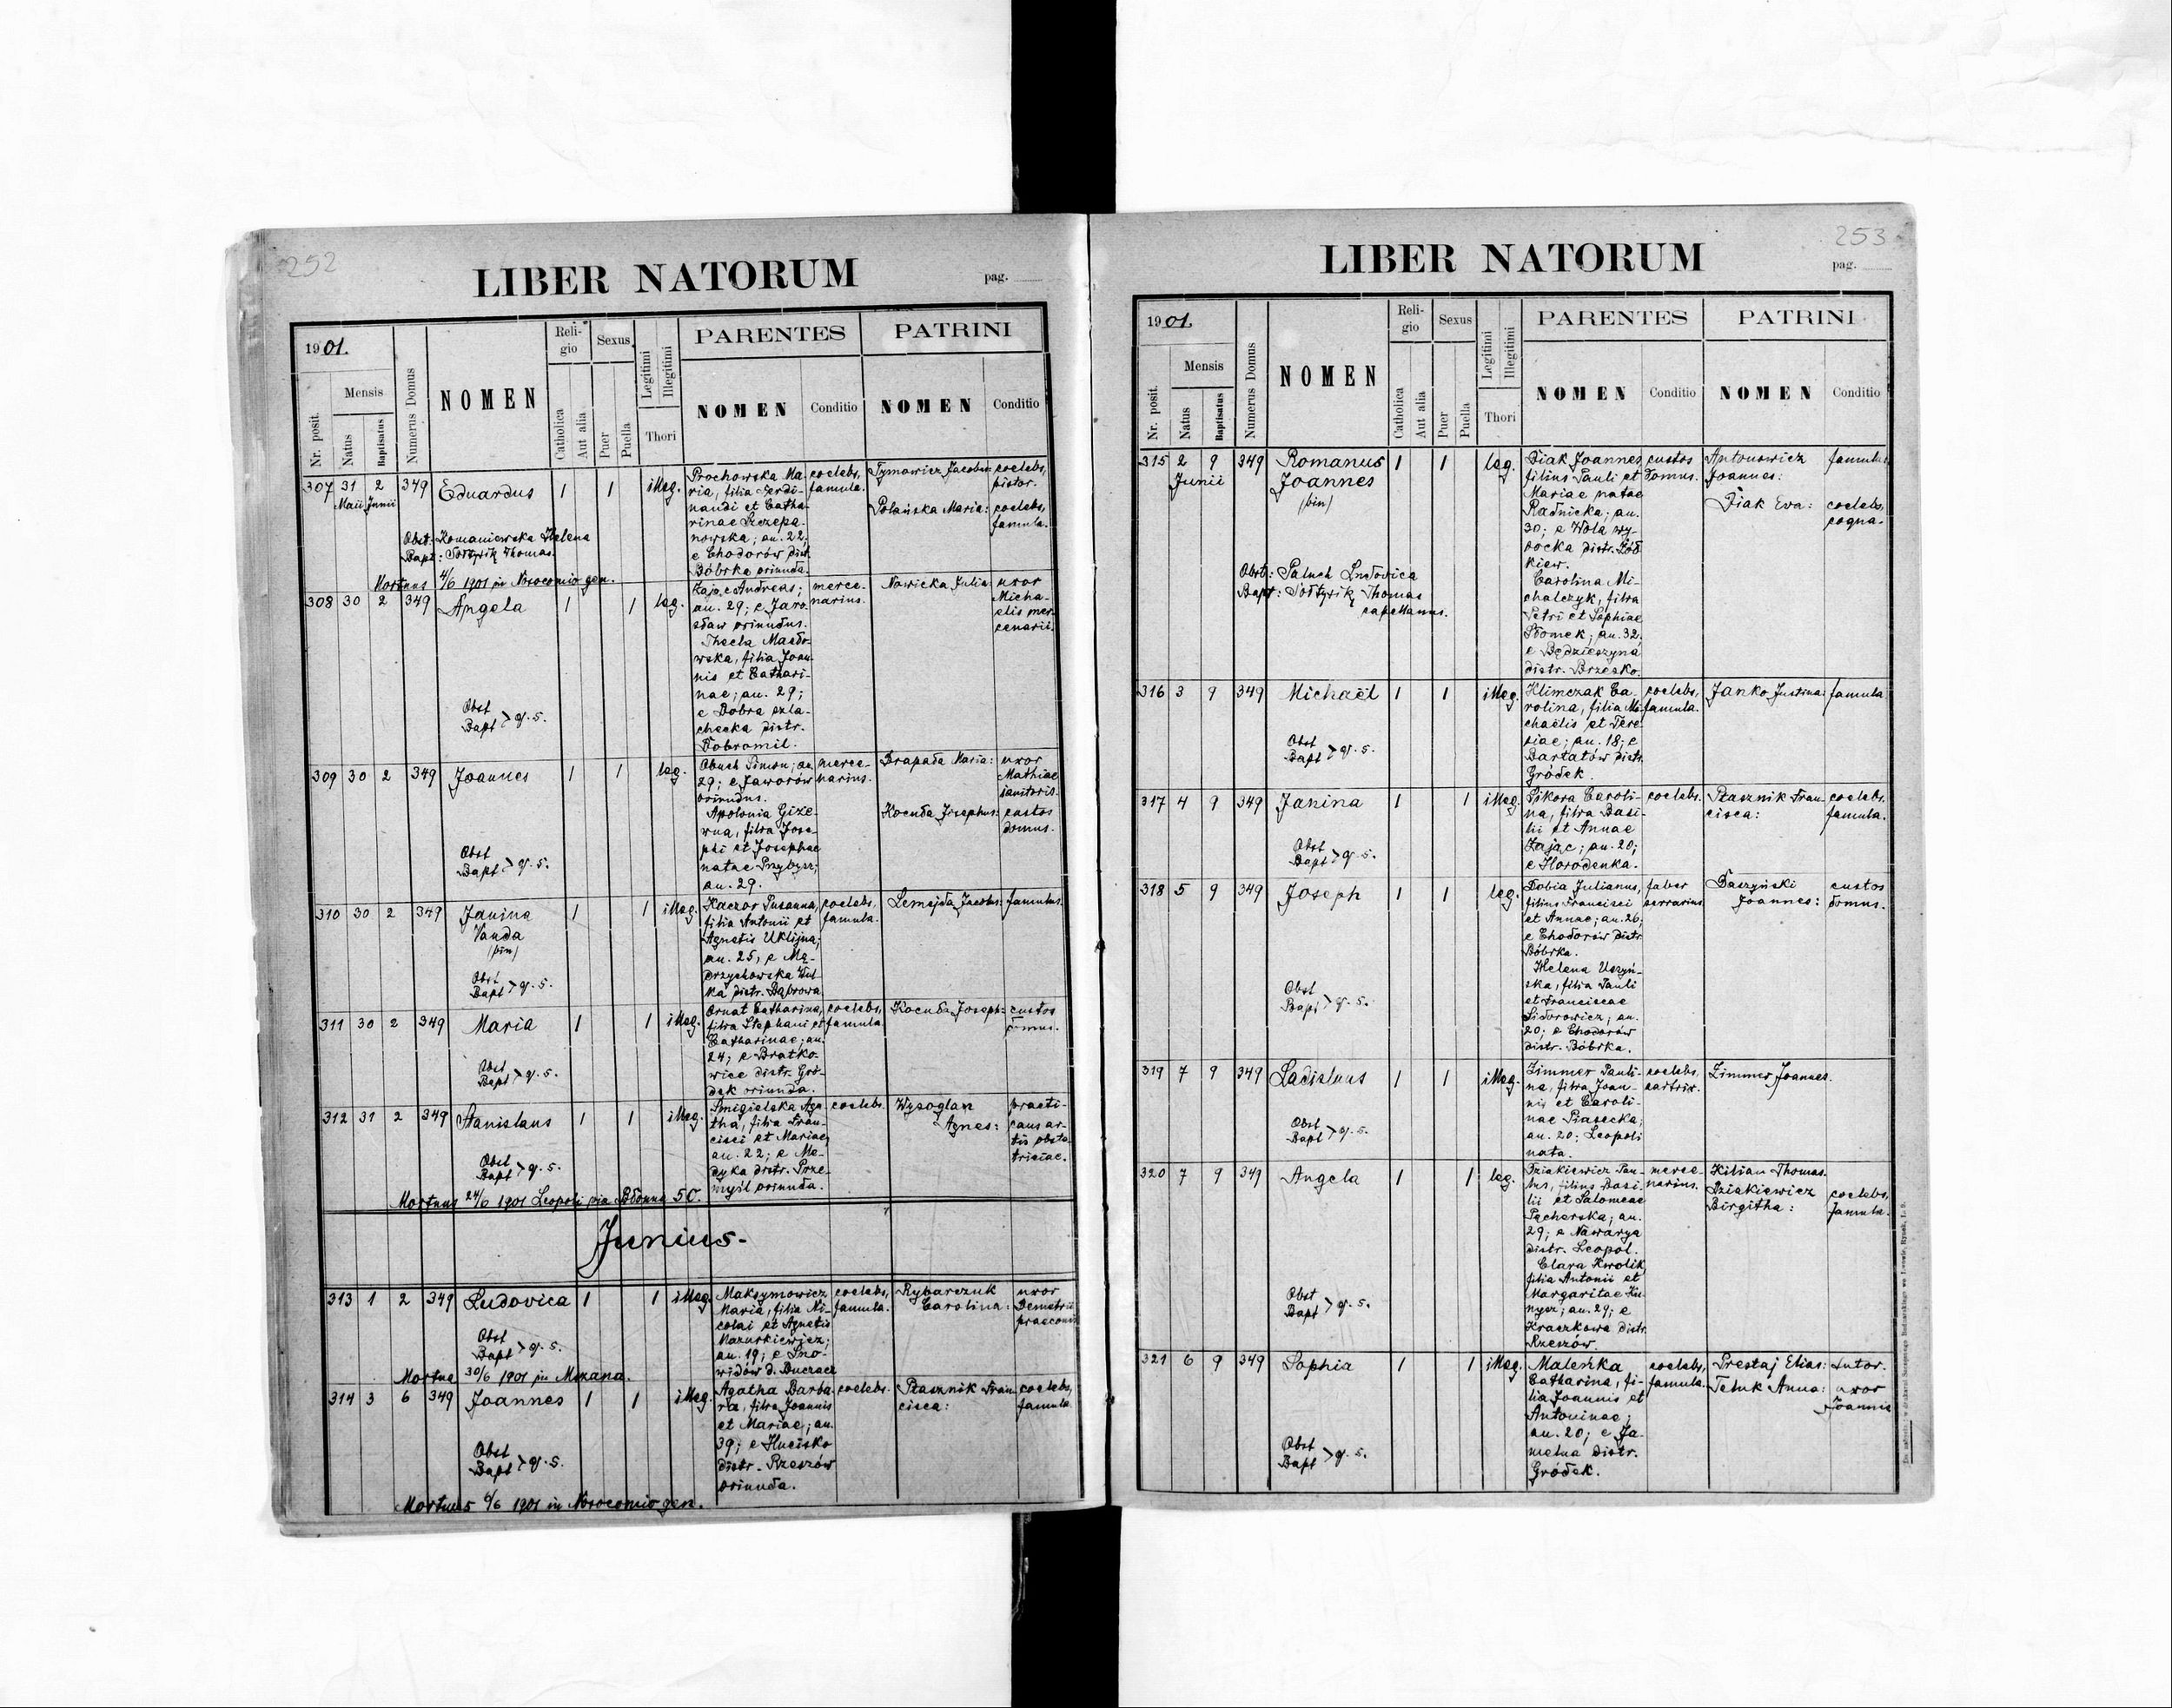 252
LIBER NATORUM
pag.
1901.
Mensis
Nr. posit.
Natus
Baptisatus
Numerus Domus
NOMEN
Reli-
gio
Catholica
Aut alia
Sexus
Puer
Puella
Legitimi
Illegitimi
Thori
PARENTES
NOMEN
Conditio
PATRINI
NOMEN
Conditio
307 31 2 349 Eduardus 1 1 illeg.
Maii Junii
Prochowska Ma-
ria, filia Ferdi-
nandi et Catha-
rinae Szczepa-
nowska; an. 22;
e Chodorów distr.
Bóbrka oriunda.
coelebs,
famula.
Tymowicz Jacobus:
coelebs,
pistor.
Polańska Maria:
coelebs,
famula.
Obst: Romaniewska Helena
Bapt: Sołtysik Thomas.
Mortuus 4/6 1901 in Nosocomio gen.
308 30 2 349 Angela 1 1 leg.
Andreas;
an. 29; e Jaro-
sław oriundus.
Thecla
wska, filia Joan-
nis et Cathari-
nae; an. 29;
e Dobra szla-
checka distr.
Dobromil.
merce-
narius.
Nowicka Julia:
uxor
Micha-
elis mer-
cenarii.
Obst
Bapt > q. s.
309 30 2 349 Joannes 1 1 leg.
Obuch Simon; an.
29; e Jaworów
oriundus.
Apolonia Giże-
wna, filia Jose-
phi et Josephae
natae Przybysz;
an. 29.
merce-
narius.
Drapała Maria:
uxor
Mathiae
janitoris.
Kocuda Josephus:
custos
domus.
Obst
Bapt > q. s.
310 30 2 349 Janina 1 1 illeg.
Vanda
(bin)
Kaczor Susanna,
filia Antonii et
Agnetis Uklijna;
an. 25, e Mę-
drzychowska Wul-
ka distr. Dąbrowa
coelebs,
famula.
Lemejda Jacobus:
famulus.
Obst
Bapt > q. s.
311 30 2 349 Maria 1 1 illeg.
Ornat Catharina,
filia Stephani et
Catharinae; an.
24; e Bratko-
wice distr. Gró-
dek oriunda.
coelebs,
famula.
Kocuda Joseph:
custos
domus.
Obst
Bapt > q. s.
312 31 2 349 Stanislaus 1 1 illeg.
Śmigielska Aga-
tha, filia Fran-
cisci et Mariae;
an. 22; e Me-
dyka distr. Prze-
myśl oriunda.
coelebs.
Wysoglan
Agnes:
practi-
cans ar-
tis obste-
triciae.
Obst
Bapt > q. s.
Mortuus 24/6 1901 Leopoli via 50.
Junius.
313 1 2 349 Ludovica 1 1 illeg.
Maksymowicz
Maria, filia Ni-
colai et Agnetis
Mazurkiewicz;
an. 19; e Sno-
widów d. Buczacz
coelebs,
famula.
Rybarczuk
Carolina:
uxor
Demetrii
praeconis
Obst
Bapt > q. s.
Mortua 30/6 1901 in Mszana.
314 3 6 349 Joannes 1 1 illeg.
Agatha Barba-
ra, filia Joannis
et Mariae; an.
39; e Hucisko
distr. Rzeszów
oriunda.
coelebs.
Ptasznik Fran-
cisca:
coelebs,
famula.
Obst
Bapt > q. s.
Mortuus 6/6 1901 in Nosocomio gen.
253
LIBER NATORUM
pag.
1901.
Mensis
Nr. posit.
Natus
Baptisatus
Numerus Domus
NOMEN
Reli-
gio
Catholica
Aut alia
Sexus
Puer
Puella
Legitimi
Illegitimi
Thori
PARENTES
NOMEN
Conditio
PATRINI
NOMEN
Conditio
315 2 9 349 Romanus 1 1 leg.
Junii
Joannes
(bin)
Diak Joannes,
filius Pauli et
Mariae natae
Radnicka; an.
30; e Wola wy-
socka distr. Żół-
kiew.
Carolina Mi-
chalczyk, filia
Petri et Sophiae
Słomek; an. 32.
e Będzieszyna
distr. Brzesko.
custos
domus.
Antonowicz
Joannes:
famulus.
Diak Eva:
coelebs,
cogna-
Obst: Paluch Ludovica
Bapt: Sołtysik Thomas
capellanus.
316 3 9 349 Michaël 1 1 illeg.
Klimczak Ca-
rolina, filia Mi-
chaëlis et Tere-
siae; an. 18; e
Bartatów distr.
Gródek.
coelebs,
famula.
Janko Justina:
famula
Obst
Bapt > q. s.
317 4 9 349 Janina 1 1 illeg.
Sikora Caroli-
na, filia Basi-
lii et Annae
Zając; an. 20;
e Horodenka.
coelebs.
Ptasznik Fran-
cisca:
coelebs,
famula.
Obst
Bapt > q. s.
318 5 9 349 Joseph 1 1 leg.
Dobia Julianus,
filius Francisci
et Annae; an. 26;
e Chodorów distr.
Bóbrka.
Helena Uszyń-
ska, filia Pauli
et Franciscae
Sidorowicz; an.
20; e Chodorów
distr. Bóbrka.
faber
serrarius.
Daszyński
Joannes:
custos
domus.
Obst
Bapt > q. s.
319 7 9 349 Ladislaus 1 1 illeg.
Zimmer Pauli-
na, filia Joan-
nis et Caroli-
nae Piasecka;
an. 20; Leopoli
nata.
coelebs,
sartrix.
Zimmer Joannes.
Obst
Bapt > q. s.
320 7 9 349 Angela 1 1 leg.
Dziakiewicz Pau-
lus, filius Basi-
lii et Salomeae
Pęcherska; an.
29; e Nawarya
distr. Leopol.
Clara Kwolik,
filia Antonii et
Margaritae Ku-
nysz; an. 29; e
Kraczkowa distr.
Rzeszów.
merce-
narius.
Kilian Thomas.
Dziakiewicz
Birgitha:
coelebs,
famula.
Obst
Bapt > q. s.
321 6 9 349 Sophia 1 1 illeg.
Maleńka
Catharina, fi-
lia Joannis et
Antoninae;
an. 20; e Ja-
melna distr.
Gródek.
coelebs,
famula.
Prestaj Elias:
sutor.
Teluk Anna:
uxor
Joannis
Obst
Bapt > q. s.